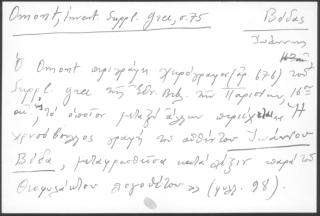 Omont, Invent. Suppl. grec, σ. 75
Βόδας
Ἰωάννης
Ὁ Omont περιγράφει χειρόγραφον (ἀρ. 676) τοῦ
Suppl. grec τῆς Ἐθν. Βιβ. τῶν Παρισίων, 16ου
αἰ., τὸ ὁποῖον μεταξὺ ἄλλων περιέχει "Ἡ
χρυσόβουλλος γραφὴ τοῦ αὐθέντου Ἰωάννου
Βόδα, μεταγρασθεῖσα κατὰ λέξιν παρὰ τοῦ
Θεοφυλάκτου λογοθέτου" (φυλ. 98).